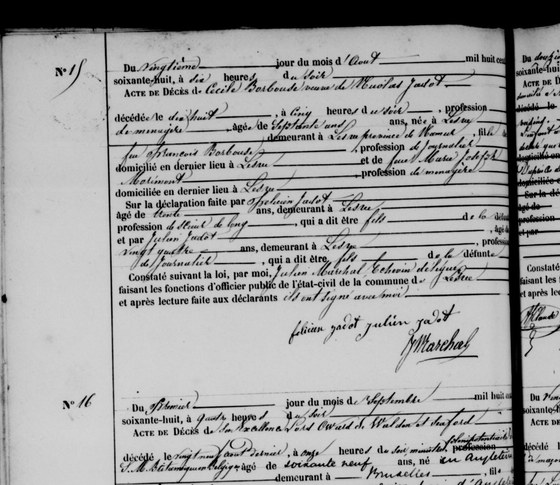 N° 15
Du vingtième jour du mois d'Août mil huit cent
soixante-huit, à six heures du soir
ACTE DE DÉCÈS de Cécile Borbouse veuve de Nicolas Jadot
décédée le dix huit, à cinq heures du soir, profession
de ménagère, âgée de septante ans, née à Lesve
demeurant à Lesve province de Namur, fille de
feu François Borbouse, profession de journalier
domicilié en dernier lieu à Lesve et de feue Marie Joseph
Molimont, profession de ménagère
domiciliée en dernier lieu à Lesve
Sur la déclaration faite par Félicien Jadot
âgé de trente ans, demeurant à Lesve
profession de scieur de long, qui a dit être fils de la défunte
et par Julien Jadot, âgé de
vingt quatre ans, demeurant à Lesve, profession
de journalier, qui a dit être fils de la défunte
Constaté suivant la loi, par moi, Julien Maréchal Echevin délégué
faisant les fonctions d'officier public de l'état-civil de la commune de Lesve
et après lecture faite aux déclarants ils ont signé avec moi
félicien jadot julien jadot
J Marechal
N° 16
Du Premier jour du mois de Septembre mil huit cent
soixante-huit, à quatre heures du soir
ACTE DE DÉCÈS de Son Excellence Lord Howard de Walden et Seaford
plénipotentiaire
décédé le vingt neuf août dernier, à onze heures du soir ministre profession
S. M. Britannique en Belgique âgé de soixante neuf ans, né en Angleterre
demeurant à Bruxelles, fils